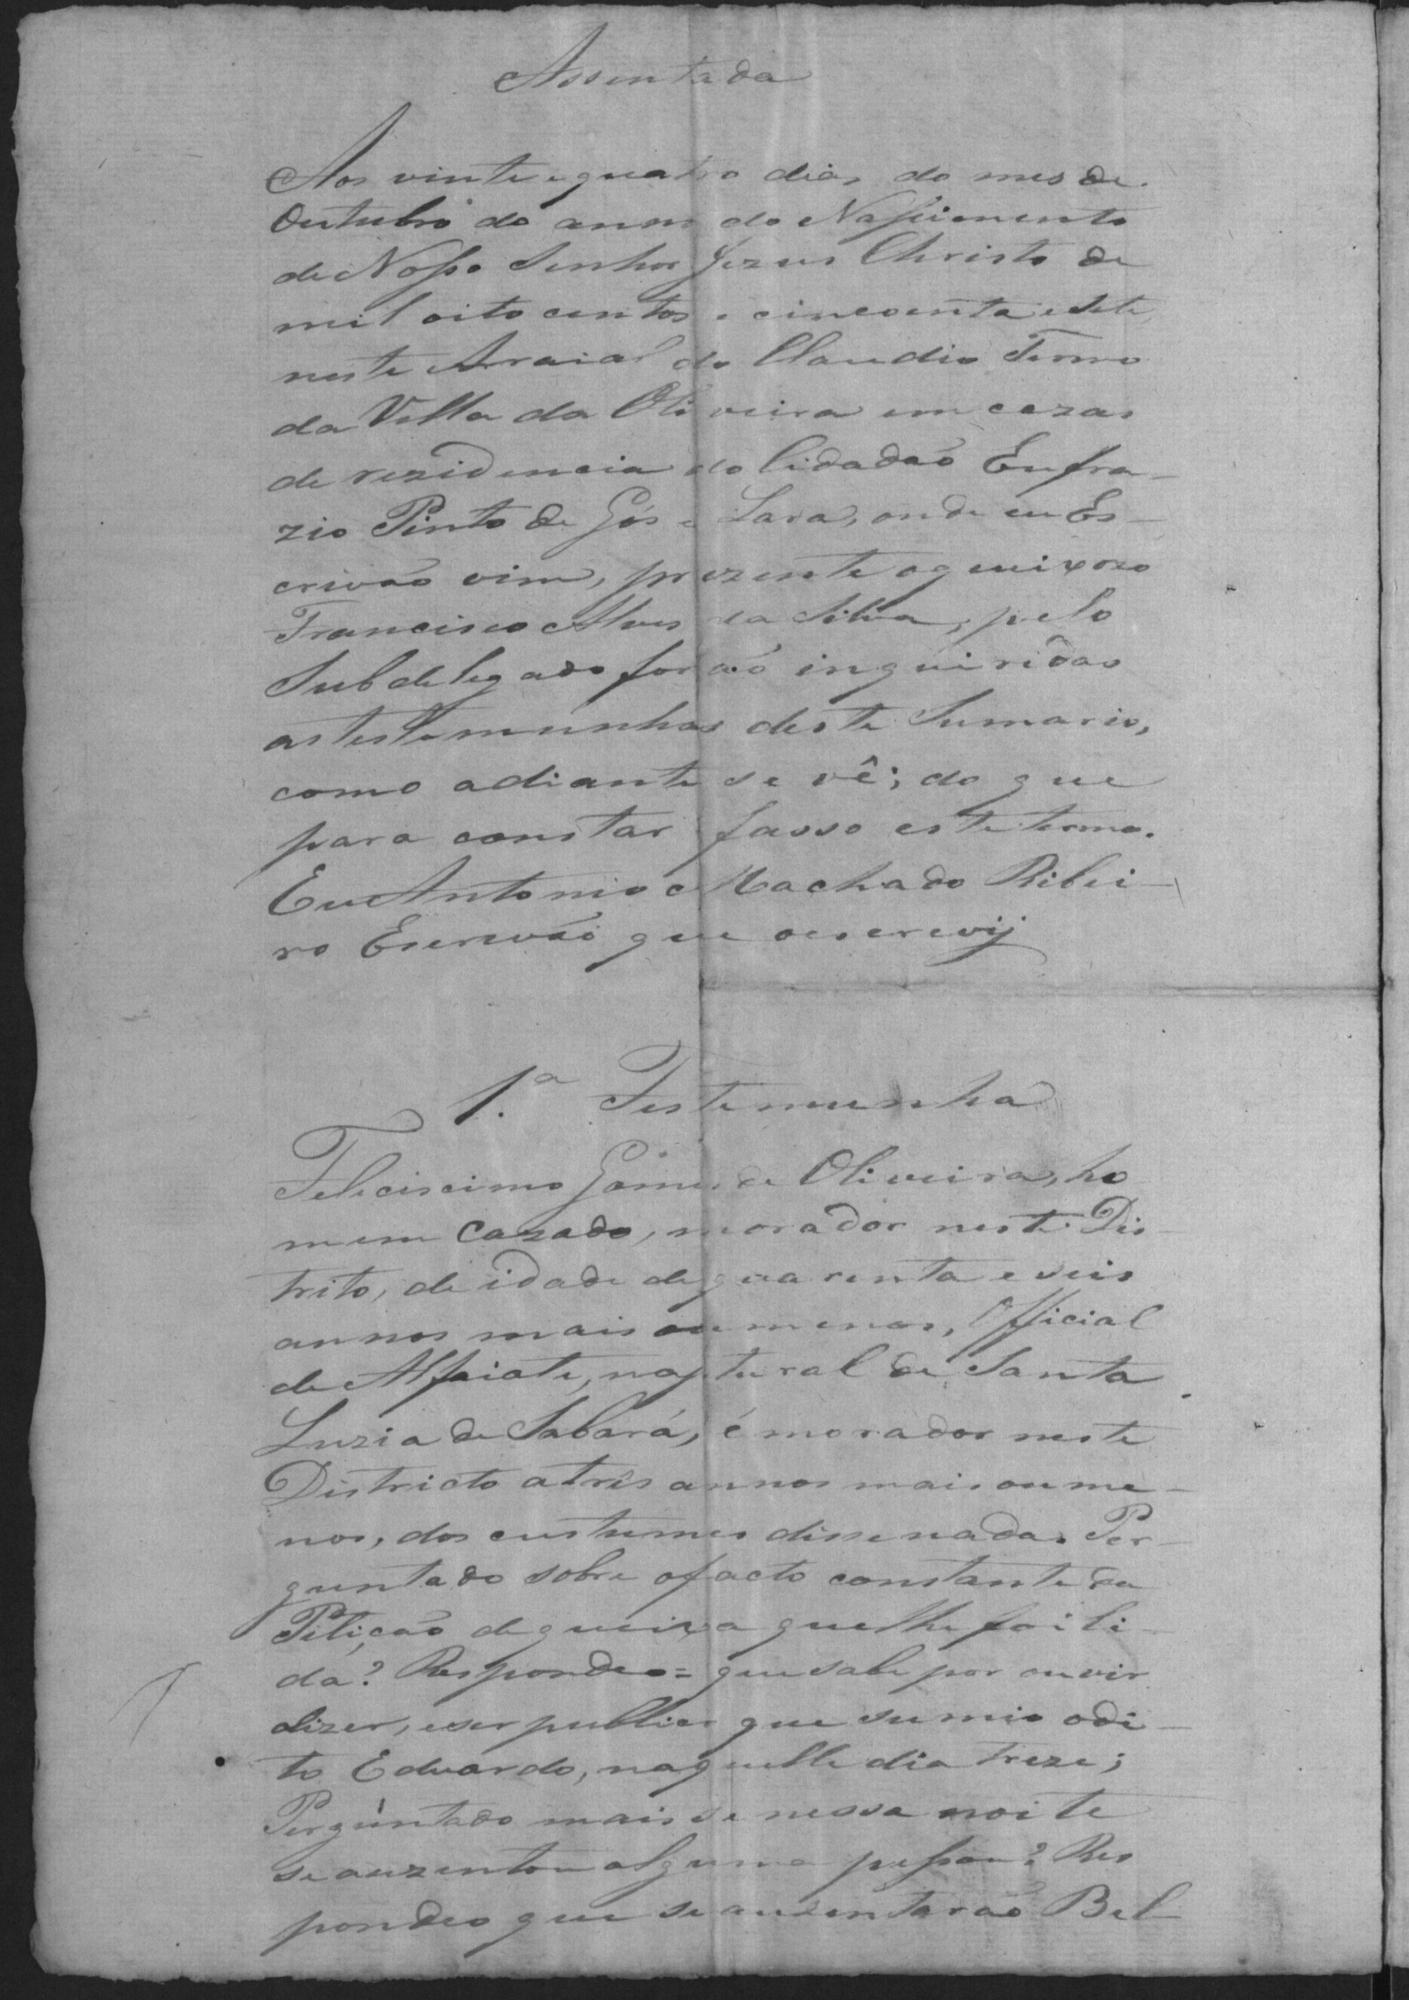 Assentada
Aos vinte e quatro dias do mes de
Outubro do anno do Nascimento
de Nosso Senhor Jezus Christo de
mil oito centos e cincoenta e sete,
neste Arraial do Claudio Termo
da Villa da Oliveira em cazas
de rezidencia do Cidadão Eufra-
zio Pinto de Gós e Lara, onde eu Es-
crivão vim, prezente o queixozo
Francisco Alves da Silva, pelo
Subdelegado forão inquiridas
as testemunhas deste Sumario,
como adiante se vê; do que
para constar fasso este termo.
Eu Antonio Machado Ribei-
ro Escrivão que o escrevij
1.ª Testemunha
Feliciscimo Gomes de Oliveira, ho
mem Cazado, morador neste Dis-
trito, de idade de quarenta e seis
annos mais ou menos, Official
de Alfaiate, natural de Santa
Luzia de Sabará, é morador neste
Districto a três annos mais ou me-
nos, dos custumes disse nada. Per-
guntado sobre o facto constante da
Petição de queixa que lhe foi li-
da? Respondeo= que sabe por ouvir
dizer, e ser publico que sumio o di-
to Eduardo, naquelle dia treze;
Perguntado mais se nessa noite
se auzentou alguma pessoa? Res
pondeo que se auzentarão Bel-